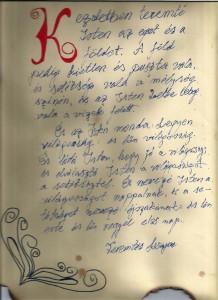 Kezdetben teremté
Isten az eget és a
földet. A föld
pedig kietlen és puszta vala,
és setétség vala a mélység
színén, és az Isten Lelke lebeg
vala a vizek felett.
És az Isten monda: Legyen
világosság: és lőn világosság.
És látá Isten, hogy jó a világosság;
és elválasztá Isten a világosságot
a setétségtől. És nevezé Isten a
világosságot nappalnak, és a se-
tétséget nevezé éjszakának: és lőn
este és lőn reggel, első nap.
Teremtés